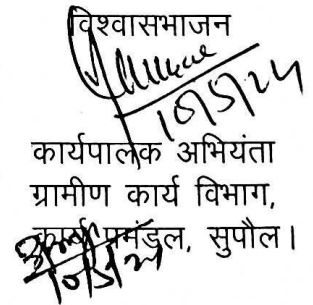 विश्वासभाजन
10/5/24
कार्यपालक अभियंता
ग्रामीण कार्य विभाग,
कार्य प्रमंडल, सुपौल।
10/5/24